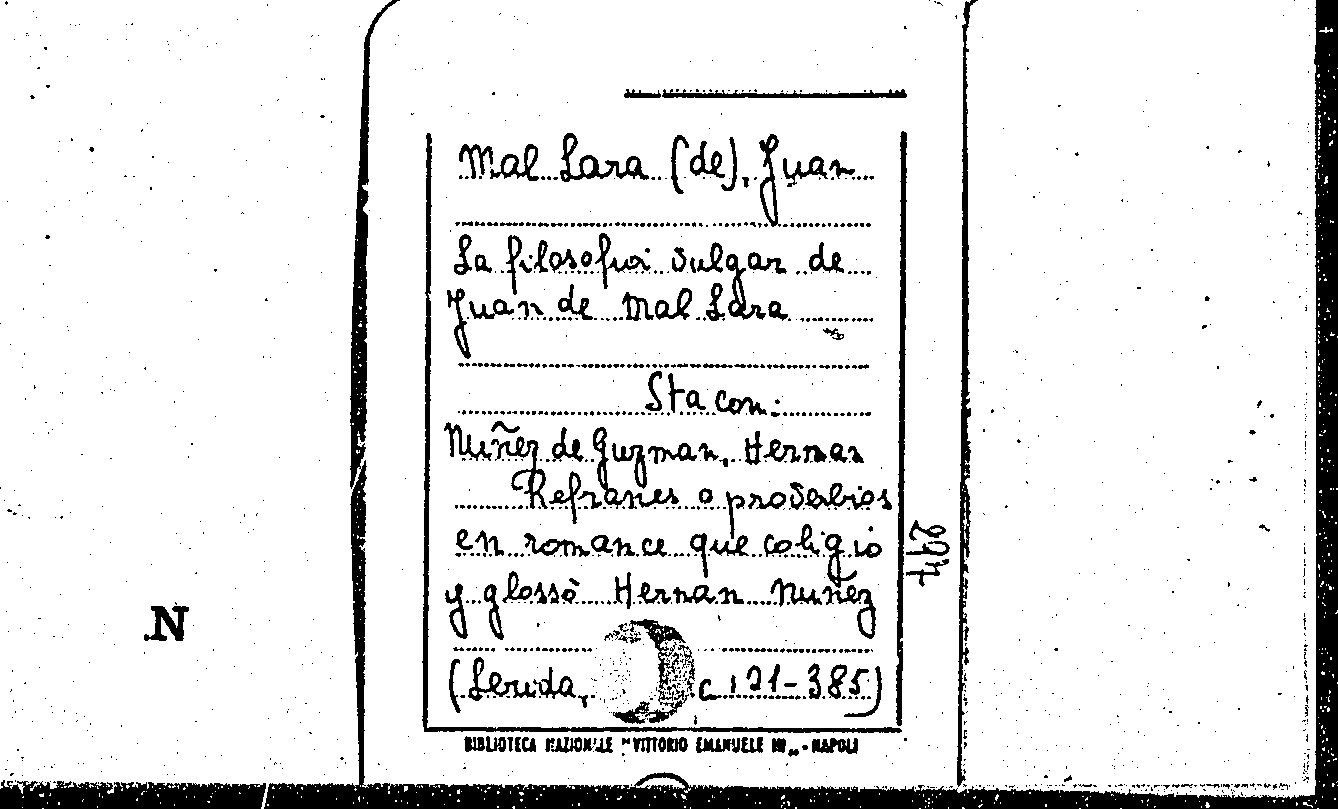 Mal Lara (de), Juan
La filosofia vulgar de
Juan de Mal Lara
Sta con:
Nuñez de Guzman, Hernan
Refranes o proverbios
en romance que coligiò
y glossò Hernan Nuñez
(Lerida, c 121-385)
294
N
BIBLIOTECA NAZIONALE "VITTORIO EMANUELE III" - NAPOLI